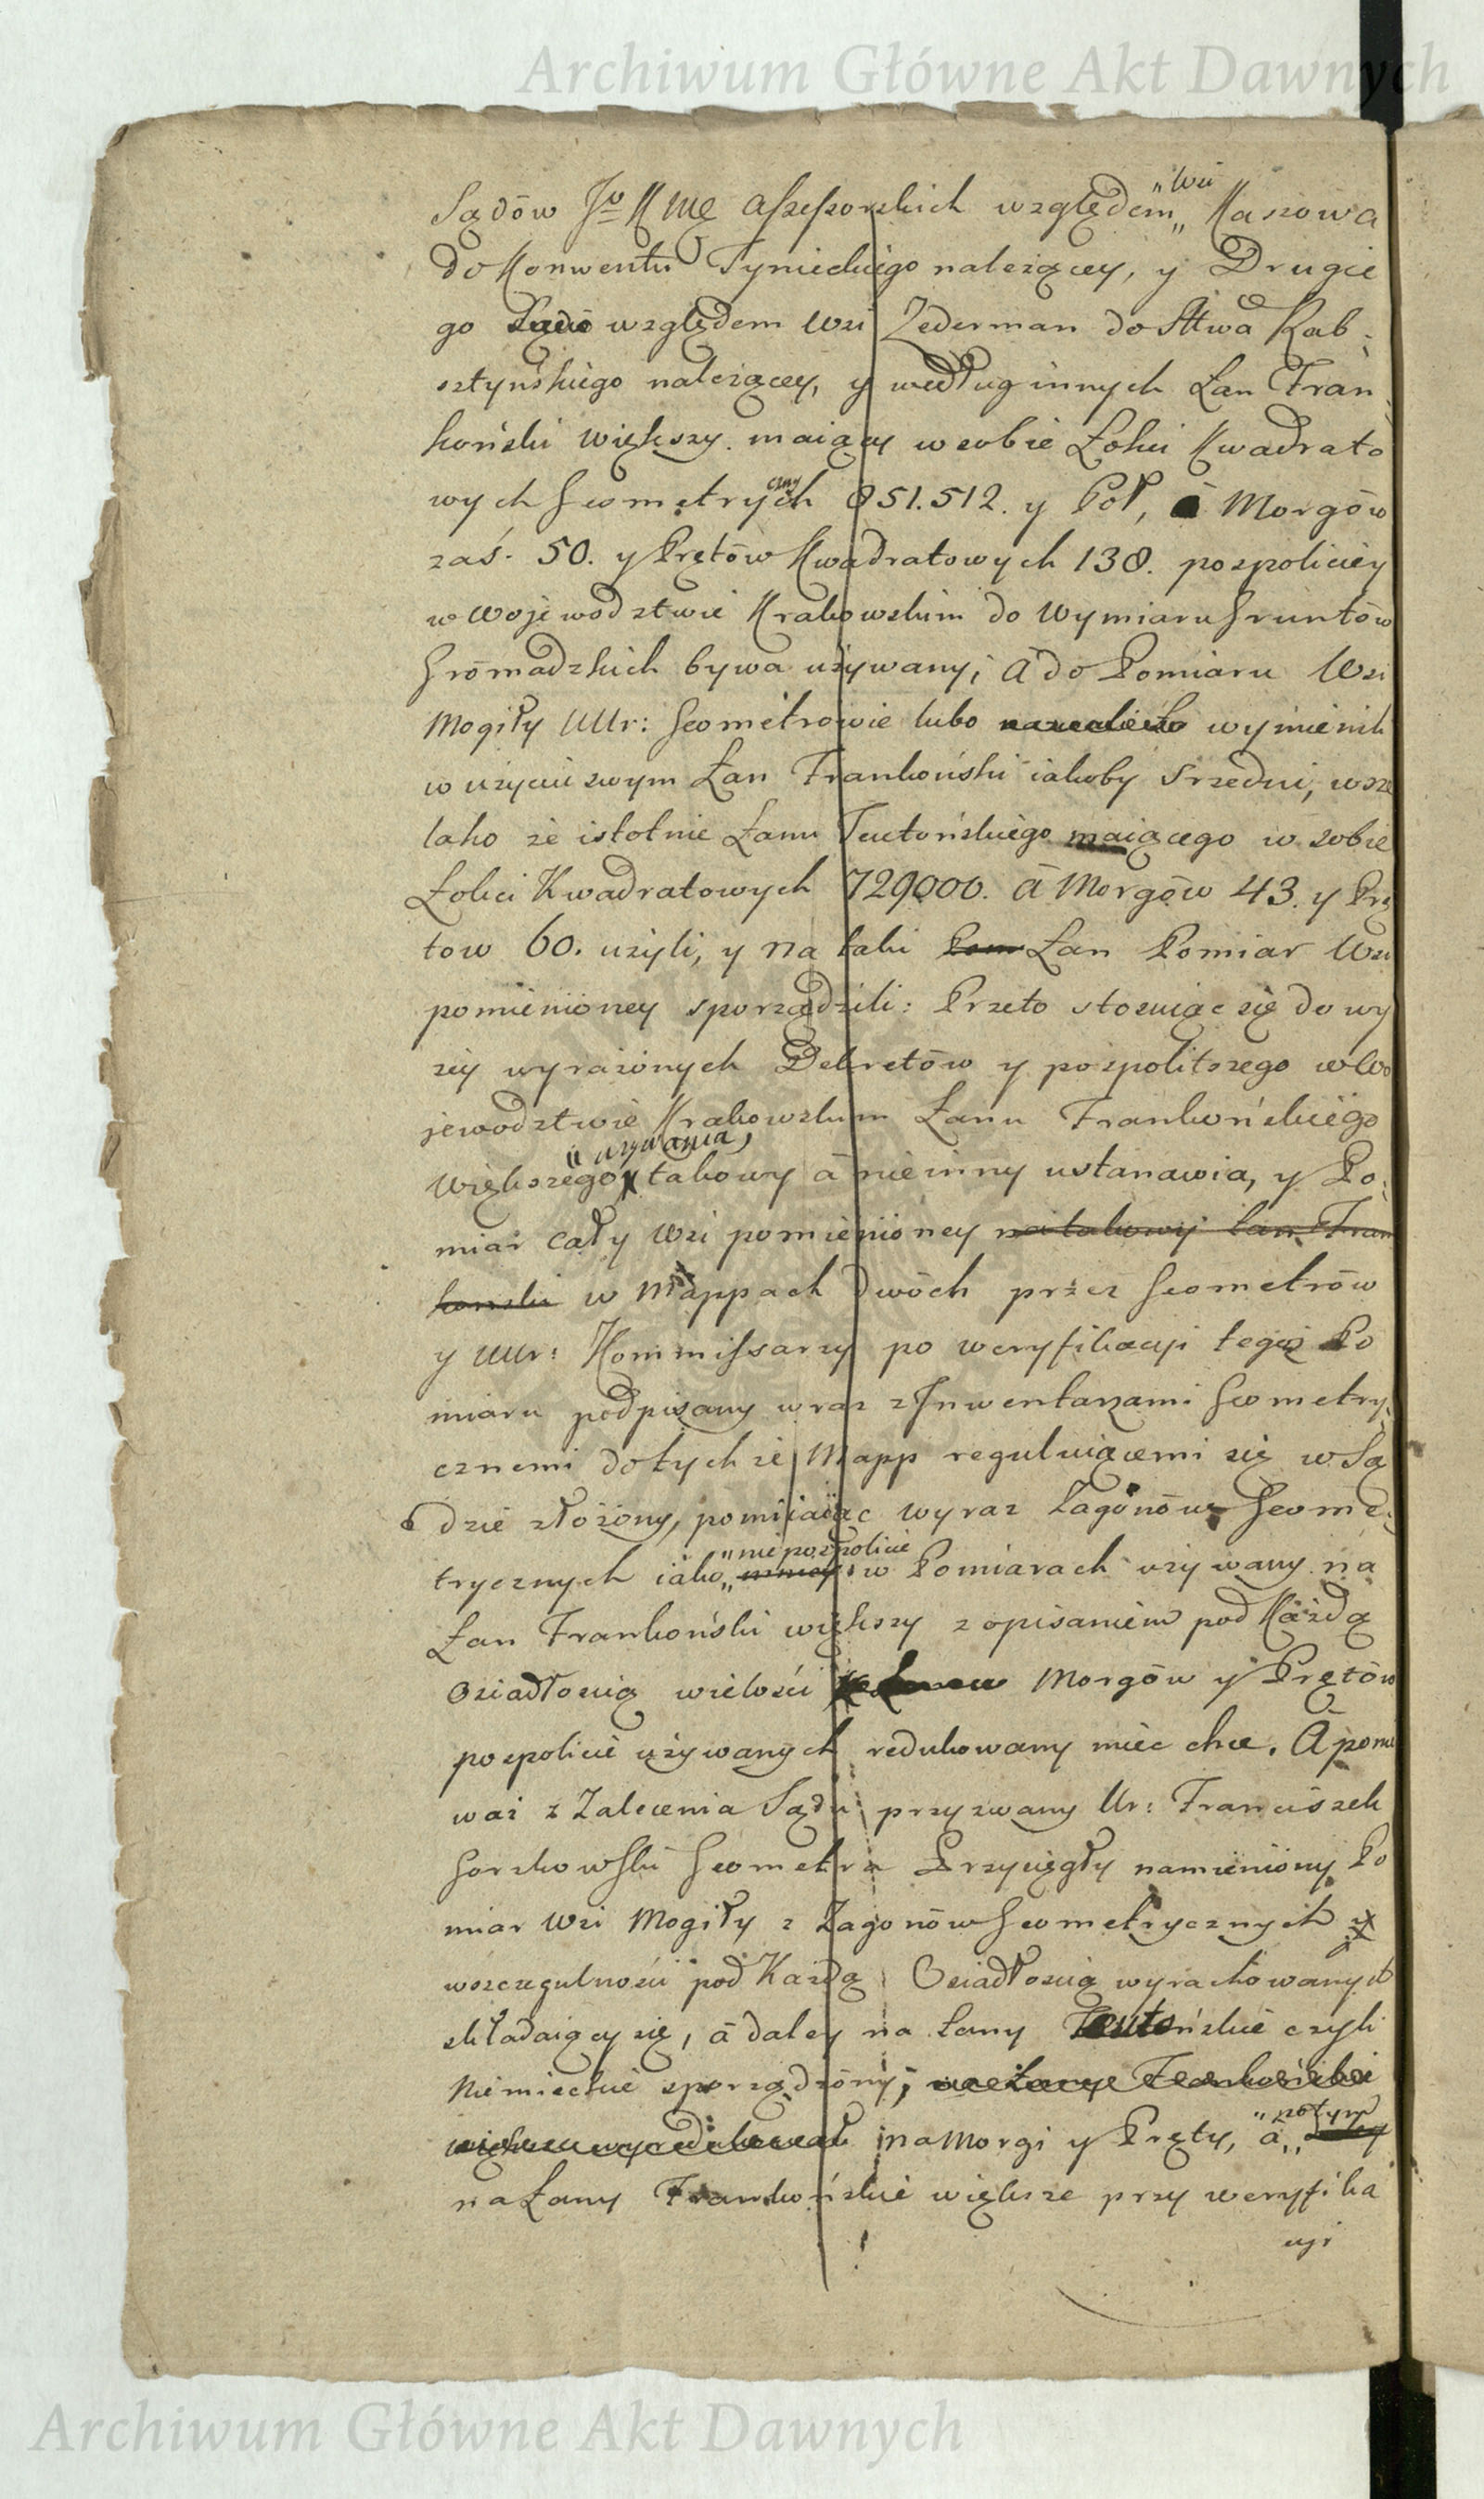 Archiwum Główne Akt Dawnych
Sądów Jo K Mę aſseſsorskich względem „Wsi „ Kaszowa
do Konwentu Tynieckiego należącey, y Drugie
go Sądu względem Wsi Zederman do Sttwa Rab-
sztyńskiego należącey, y według innych Łan Fran-
koński większy maiący w sobie Łokci Kwadrato
wych Geometrycznych 851.512. y Poł, à Morgów
zaś 50. y Prętów Kwadratowych 138. pospoliciey
w Wojewodztwie Krakowskim do Wymiaru Gruntów
Gromadzkich bywa używany; à do Pomiaru Wsi
Mogiły UUr: Geometrowie lubo wymienili
w użyciu swym Łan Frankoński iakoby Srzedni, wsze
lako że istotnie Łanu Teutońskiego maiącego w sobie
Łokci Kwadratowych 729000. à Morgów 43. y Prę
tow 60. użyli, y na taki Pom Łan Pomiar Wsi
pomienioney sporządzili: Przeto stosuiąc się do wy
zey wyrażonych Dekretów y pospolitszego w Wo
jewodztwie Krakowskim Łanu Frankońskiego
większego „ używania, takowy à nie inny ustanawia, y Po-
miar cały Wsi pomienioney na takowy Łan Fran
konski w Mappach dwóch przez Geometrów
y UUr: Kommiſsarzy po weryfikacyi tegoż Po
miaru podpisany wraz z Inwentarzami Geometry-
cznemi do tychże Mapp reguluiącemi się w Są
dzie złożony, pomiiaiąc wyraz Zagonów Geome-
trycznych iako „ nie pospolicie w Pomiarach używany na
Łan Frankoński większy z opisaniem pod Każdą
Osiadłością wielości Morgów y Prętów
pospolicie używanych redukowany mieć chce. A ponie
waż z Zalecenia Sądu przyzwany Ur: Franciszek
Gorzkowski Geometra Przysięgły namieniony Po
miar Wsi Mogiły z Zagonów Geometrycznych
w szczegulności pod Każdą Osiadłością wyrachowanych
składaiący się, à daley na Łany Teutońskie czyli
Niemieckie sporządzony, na Łany Frankońskie
na Morgi y Pręty, à „ potym
na Łany Frankońskie większe przy weryfika
cyi
Archiwum Główne Akt Dawnych